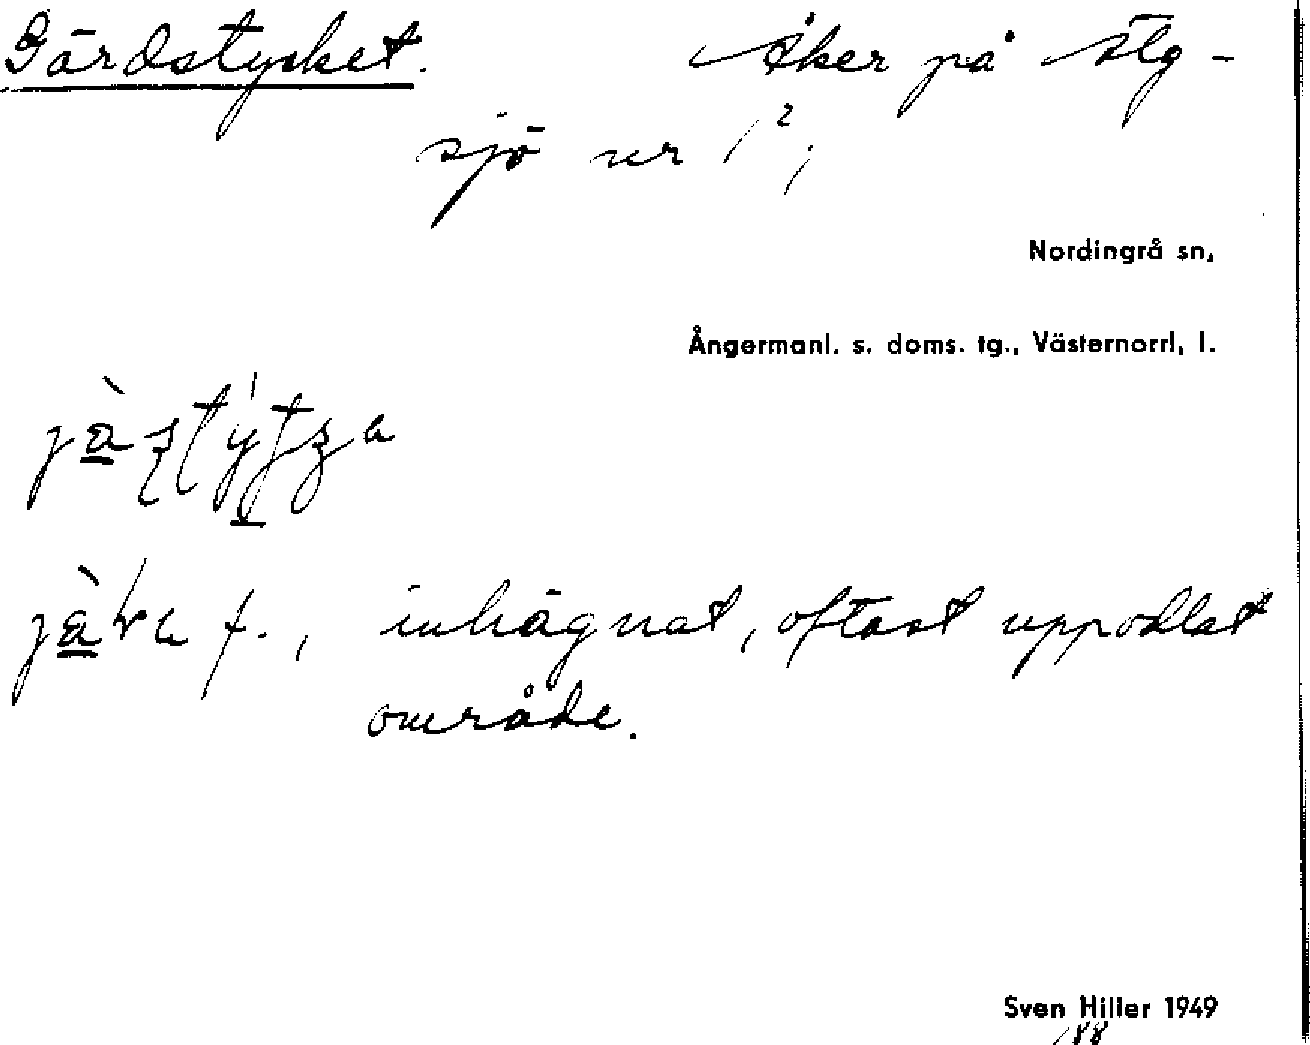 Gärdstycket. Åker på Älg-
sjö nr 1²;
Nordingrå sn,
Ångermanl. s. doms. tg., Västernorrl, l.
f., inhägnat, oftast uppodlat
område.
Sven Hiller 1949
188